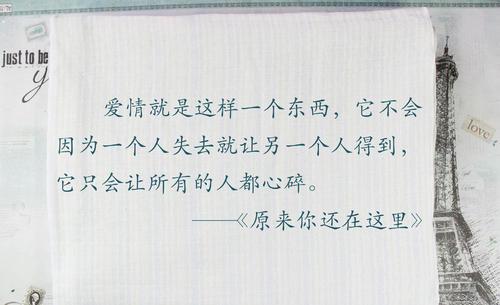 just to be
y
爱情就是这样一个东西，它不会
因为一个人失去就让另一个人得到，
它只会让所有的人都心碎。
——《原来你还在这里》
love